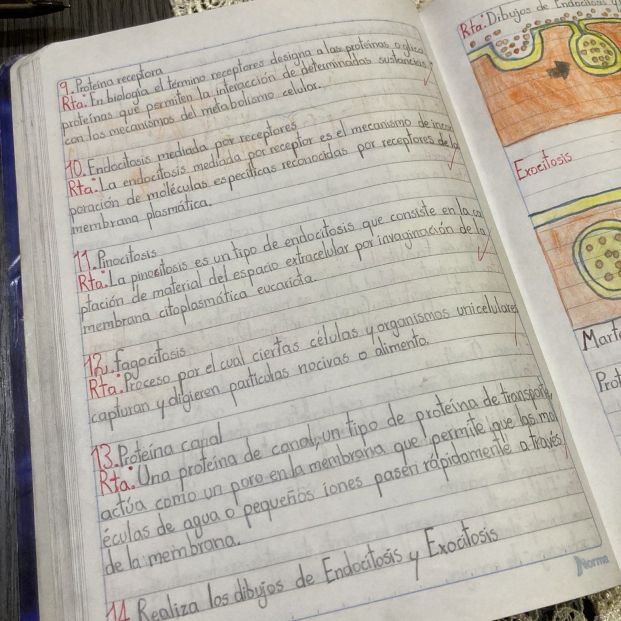 9. Proteina receptora
Rta: En biología el término receptores designa a las proteínas o glico
proteínas que permiten la interacción de determinadas sustancias
con los mecanismos del metabolismo celular.
10. Endocitosis mediada por receptores
Rta: La endocitosis mediada por receptor es el mecanismo de incor
poración de moléculas específicas reconocidas por receptores de la
membrana plasmática.
11. Pinocitosis
Rta: La pinocitosis es un tipo de endocitosis que consiste en la ca
ptación de material del espacio extracelular por invaginación de la
membrana citoplasmática eucariota.
12. fagocitosis
Rta: Proceso por el cual ciertas células y organismos unicelulares
capturan y digieren partículas nocivas o alimento.
13. Proteína canal
Rta: Una proteína de canal, un tipo de proteína de transporte,
actúa como un poro en la membrana que permite que las mol
éculas de agua o pequeños iones pasen rápidamente a través
de la membrana.
14 Realiza los dibujos de Endocitosis y Exocitosis
Norma
Rta: Dibujos de Endocitosis y
Exocitosis
Mart
Prot